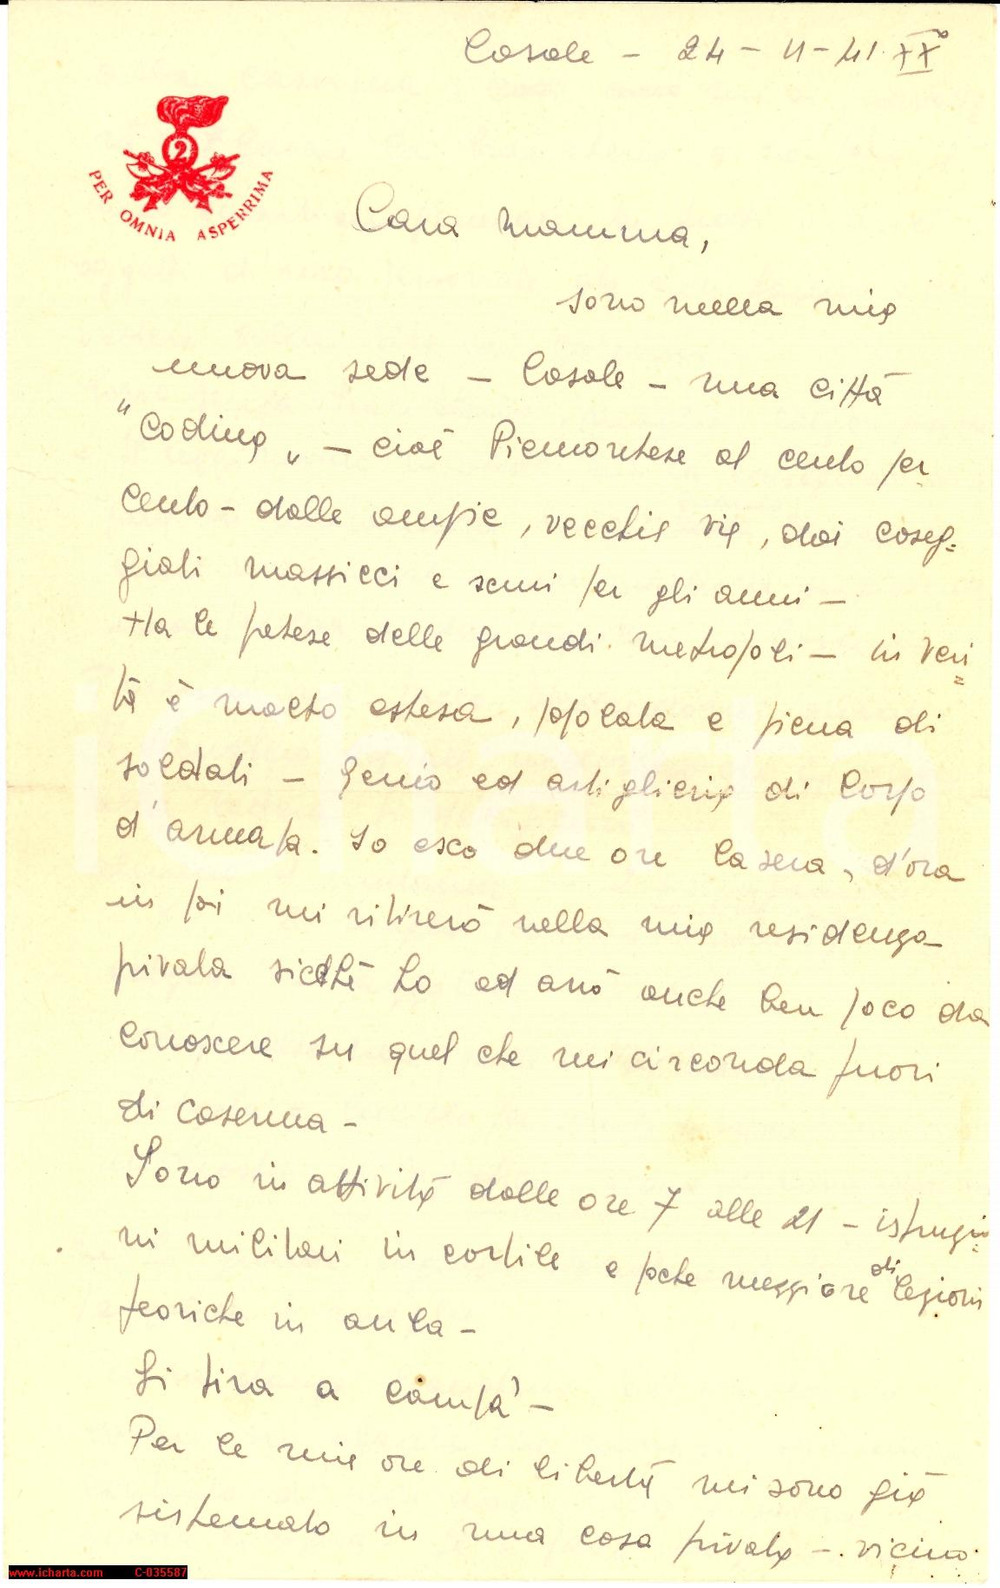 Casale - 24 - 11 - 41 XXº
2
PER OMNIA ASPERRIMA
Cara mamma,
sono nella mia
nuova sede - Casale - una città
"Codina" - cioè Piemontese al cento per
cento - dalle ampie, vecchie vie, dai caseg=
giati massicci e seri per gli anni -
Ha le pretese delle grandi metropoli - in veri
=
tà è molto estesa, popolata e piena di
soldati - Genio ed artiglieria di Corpo
d'armata. Io esco due ore la sera, d'ora
in poi mi ritirerò nella mia residenza
privata sicché ho ed avrò anche ben poco da
conoscere su quel che mi circonda fuori
di caserma -
Sono in attività dalle ore 7 alle 21 - istruzio
=
ni militari in cortile e parte maggiore di lezioni
teoriche in aula -
Si tira a campa' -
Per le mie ore di libertà mi sono già
sistemato in una casa privata - vicino
www.icharta.com C-035587
icharta